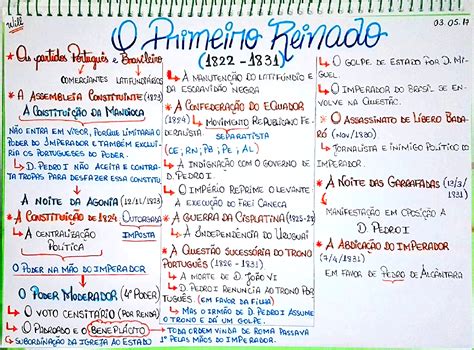 Will
03.05.17
O Primeiro Reinado
(1822 - 1831)
* Os partidos Português e Brasileiro
COMERCIANTES LATIFUNDIÁRIOS
* A ASSEMBLEIA CONSTITUINTE (1823)
A CONSTITUIÇÃO DA MANDIOCA
NÃO ENTRA EM VIGOR, PORQUE LIMITARIA O
PODER DO IMPERADOR E TAMBÉM EXCLUI-
RIA OS PORTUGUESES DO PODER.
↳ D. PEDRO I NÃO ACEITA E CONTRA-
TA TROPAS PARA DESFAZER ESSA CONSTITU
A NOITE DA AGONIA (12/11/1823)
* A CONSTITUIÇÃO DE 1824 OUTORGADA
IMPOSTA
↳ A CENTRALIZAÇÃO
POLÍTICA
O PODER NA MÃO DO IMPERADOR
↳ O PODER MODERADOR (4º PODER)
↳ O VOTO CENSITÁRIO (POR RENDA)
↳ O PADROADO E O BENEPLÁCITO
SUBORDINAÇÃO DA IGREJA AO ESTADO
TODA ORDEM VINDA DE ROMA PASSAVA
1º PELAS MÃOS DO IMPERADOR.
↳ A MANUTENÇÃO DO LATIFÚNDIO E
DA ESCRAVIDÃO NEGRA
* A CONFEDERAÇÃO DO EQUADOR
(1824) MOVIMENTO REPUBLICANO FE-
DERALISTA. SEPARATISTA
(CE; RN; PB; PE; AL)
↳ A INDIGNAÇÃO COM O GOVERNO DE
D. PEDRO I.
↳ O IMPÉRIO REPRIME O LEVANTE
A EXECUÇÃO DO FREI CANECA
* A GUERRA DA CISPLATINA (1825-28)
↳ A INDEPENDÊNCIA DO URUGUAI
* A QUESTÃO SUCESSÓRIA DO TRONO
PORTUGUÊS (1826 - 1831)
↳ A MORTE DE D. JOÃO VI
↳ D. PEDRO I RENUNCIA AO TRONO POR-
TUGUÊS. (EM FAVOR DA FILHA)
↳ MAS O IRMÃO DE D. PEDRO I ASSUME
O TRONO E DÁ UM GOLPE.
↳ O GOLPE DE ESTADO POR D. MI-
GUEL.
↳ O IMPERADOR DO BRASIL SE EN-
VOLVE NA QUESTÃO.
* O ASSASSINATO DE LÍBERO BADA-
RÓ (NOV/1830)
↳ JORNALISTA E INIMIGO POLÍTICO DO
IMPERADOR.
* A NOITE DAS GARRAFADAS (13/3/
1831)
MANIFESTAÇÃO EM OPOSIÇÃO A
D. PEDRO I
* A ABDICAÇÃO DO IMPERADOR
(7/4/1831)
EM FAVOR DE PEDRO DE ALCÂNTARA